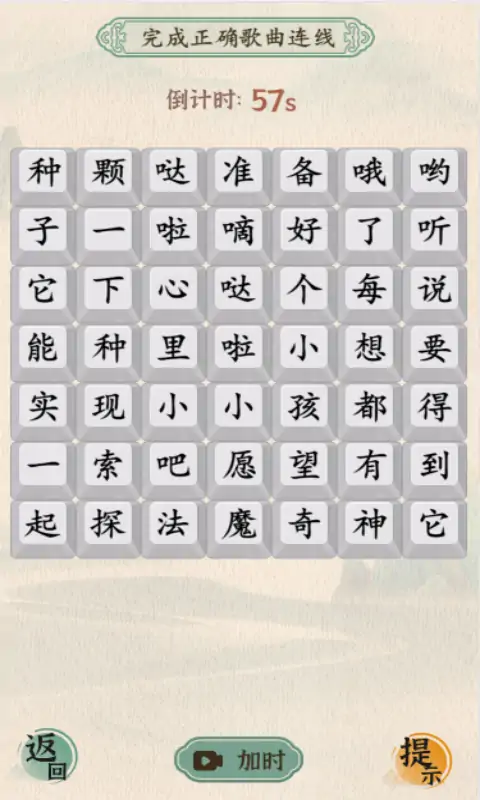 完成正确歌曲连线
倒计时: 57s
种颗哒准备哦哟
子一啦嘀好了听
它下心哒个每说
能种里啦小想要
实现小小孩都得
一索吧愿望有到
起探法魔奇神它
返回
加时
提示